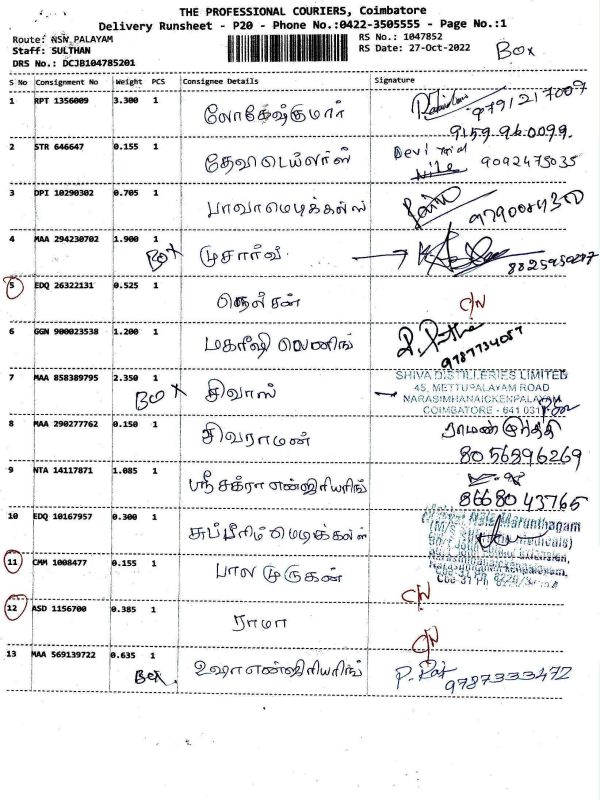 THE PROFESSIONAL COURIERS, Coimbatore
Delivery Runsheet - P20 - Phone No.:0422-3505555 - Page No.:1
Route: NSN PALAYAM
RS No.: 1047852
Staff: SULTHAN
RS Date: 27-Oct-2022
Box
DRS No.: DCJB104785201
S No Consignment No Weight PCS Consignee Details Signature
1 RPT 1356009 3.300 1 லோகேஷ்குமார் 9791217009
9159 940099
2 STR 646647 0.155 1 தேவி டெய்லர்ஸ் Devi 9092475035
3 DPI 10290302 0.705 1 பாவா மெடிக்கல்ஸ்
4 MAA 294230702 1.900 1 Box
5 EDQ 26322131 0.525 1 நெல்சன் C/N
6 GGN 900023538 1.200 1 மகரிஷி 9787734057
7 MAA 858389795 2.350 1 Box சிவாஸ் SHIVA DISTILLERIES LIMITED
45, METTUPALAYAM ROAD
NARASIMHANAICKENPALAYAM
COIMBATORE - 641 031
8 MAA 290277762 0.150 1 சிவராமன் ராமன்
80 56896269
9 NTA 14117871 1.085 1 ஸ்ரீ சக்ரா என்ஜினியரிங் 86680 43765
10 EDQ 10167957 0.300 1 சுப்பீரிம் மெடிக்கல்ஸ் Marunthagam
11 CMM 1008477 0.155 1 பால முருகன் C/N
12 ASD 1156700 0.385 1 ராமா C/N
13 MAA 569139722 0.635 1 Box. உஷா என்ஜினியரிங் P. Raj 9787333472